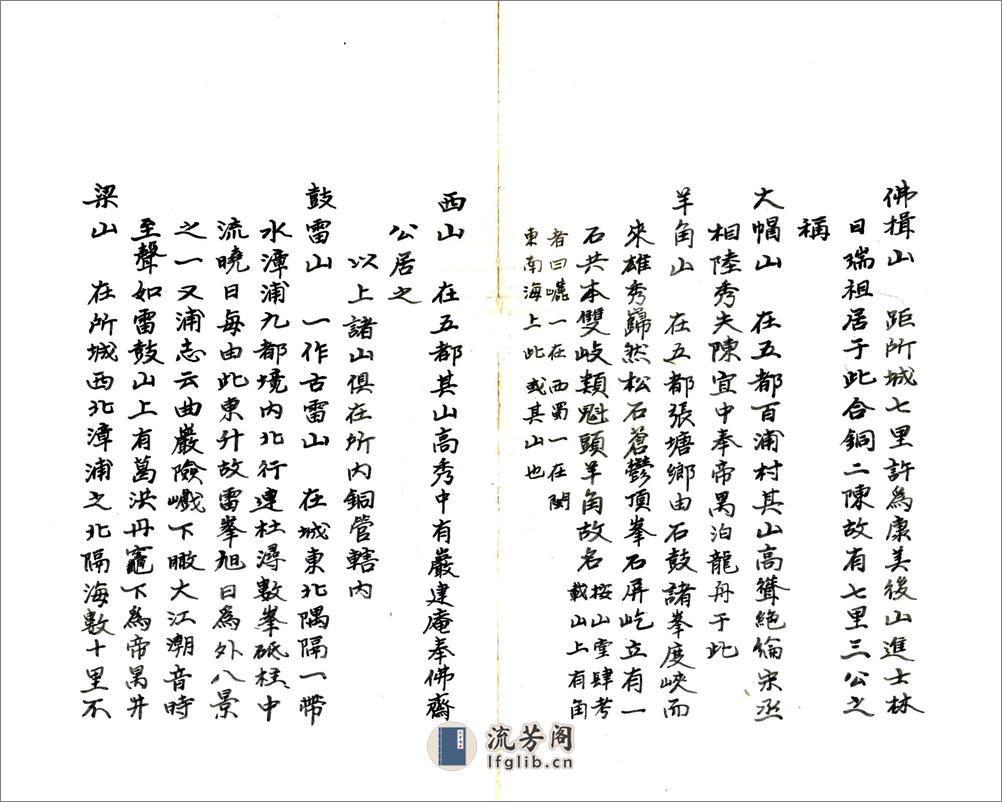 佛揖山 距所城七里許為康美後山進士林
日瑞祖居于此合銅二陳故有七里三公之
稱
大帽山 在五都百浦村其山高聳絕倫宋丞
相陸秀夫陳宜中奉帝昺泊龍舟于此
羊角山 在五都張塘鄉由石鼓諸峯度峽而
來雄秀巋然松石蒼鬱頂峯石屏屹立有一
石共本雙岐類魁頭羊角故名 按山堂肆考
載山上有角
者曰㠣一在西蜀一在閩
東南海上此或其山也
西山 在五都其山高秀中有巖建庵奉佛齋
公居之
以上諸山俱在所內銅管轄內
鼓雷山 一作古雷山 在城東北隅隔一帶
水漳浦九都境內北行連杜潯數峯砥柱中
流曉日每由此東升故雷峯旭日為外八景
之一又浦志云曲巖險巇下瞰大江潮音時
至聲如雷鼓山上有葛洪丹竈下為帝昺井
梁山 在所城西北漳浦之北隔海數十里不
流芳阁
lfglib.cn